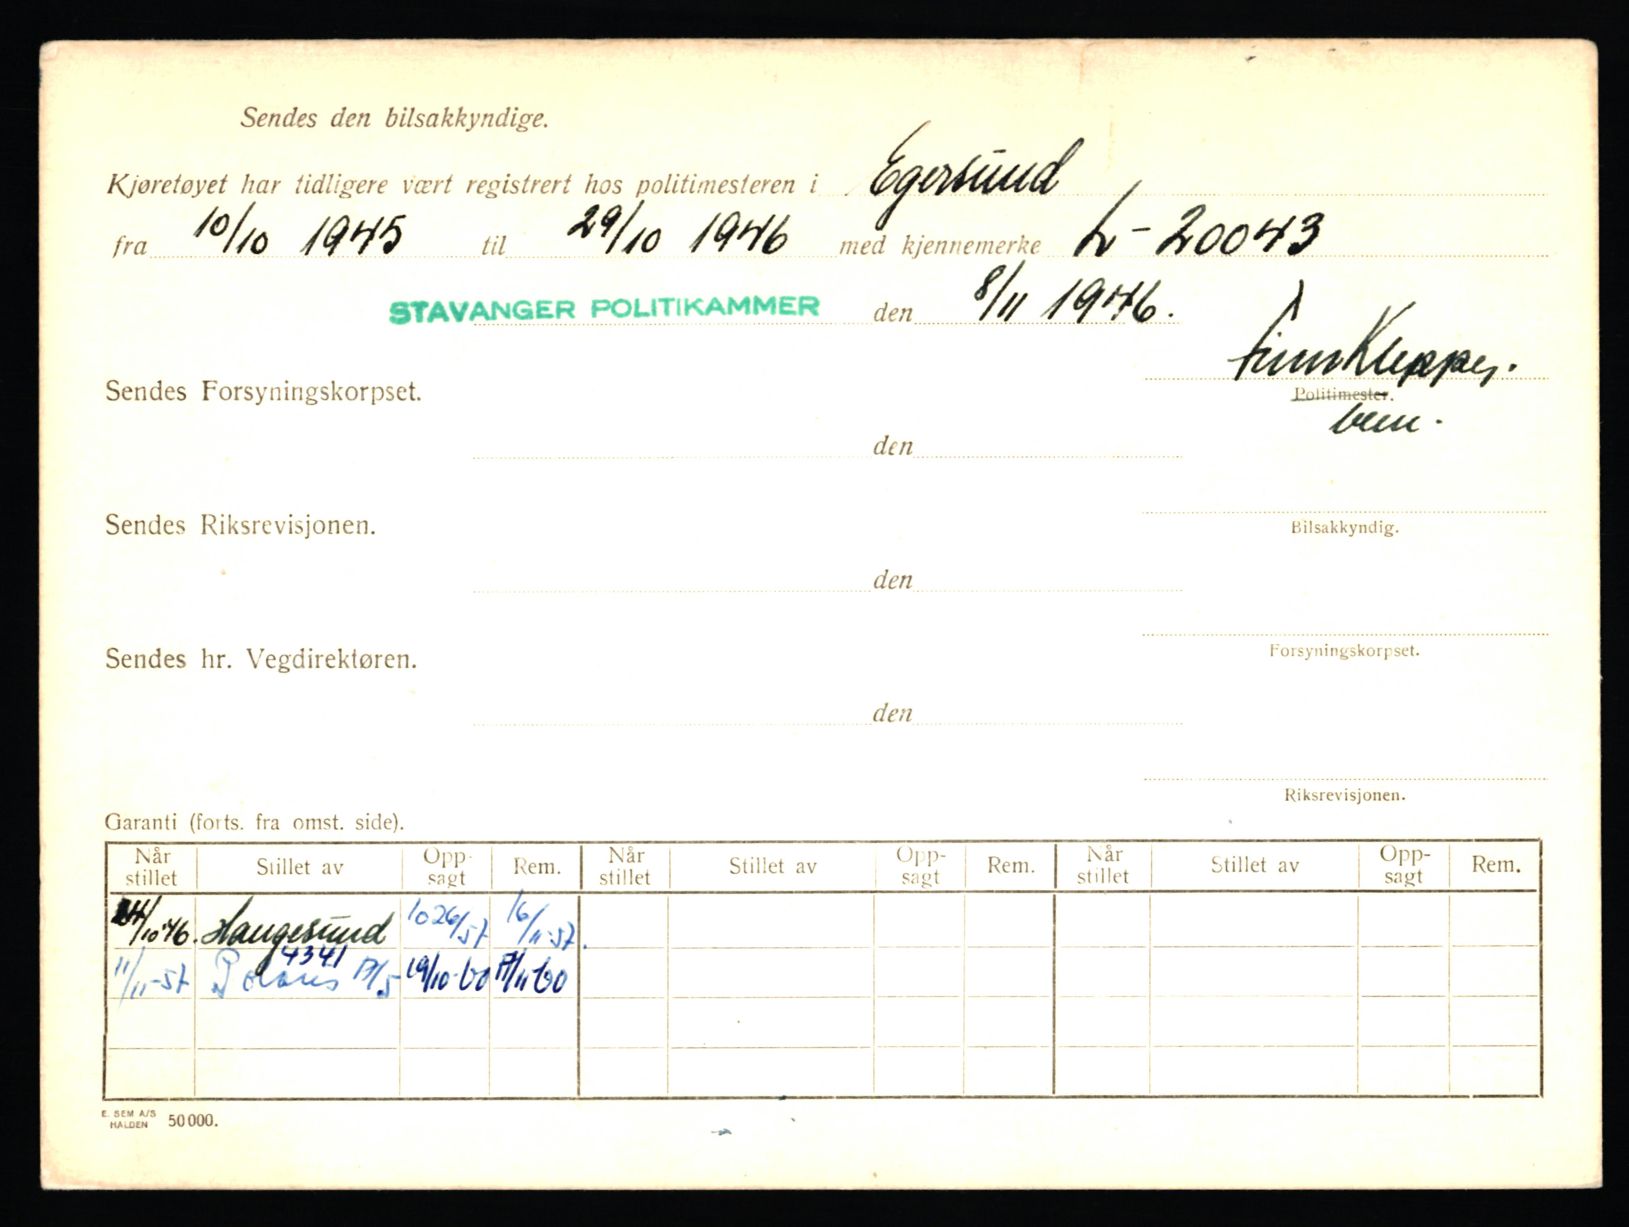 Sendes den bilsakkyndige.
Kjøretøyet har tidligere vært registrert hos politimesteren i Egersund
fra 10/10 1945 til 29/10 1946 med kjennemerke L-20043
STAVANGER POLITIKAMMER den 8/11 1946.
Finn Kleppe.
Sendes Forsyningskorpset.
Politimester.
den
Sendes Riksrevisjonen.
Bilsakkyndig.
den
Forsyningskorpset.
Sendes hr. Vegdirektøren.
den
Riksrevisjonen.
Garanti (forts. fra omst. side).
Når stillet Stillet av Opp-sagt Rem. Når stillet Stillet av Opp-sagt Rem. Når stillet Stillet av Opp-sagt Rem.
/10 46. Haugesund 16/11-57.
4341
11/11-57 Polaris 19/10-60 17/11 60
E. SEM A/S
HALDEN 50 000.